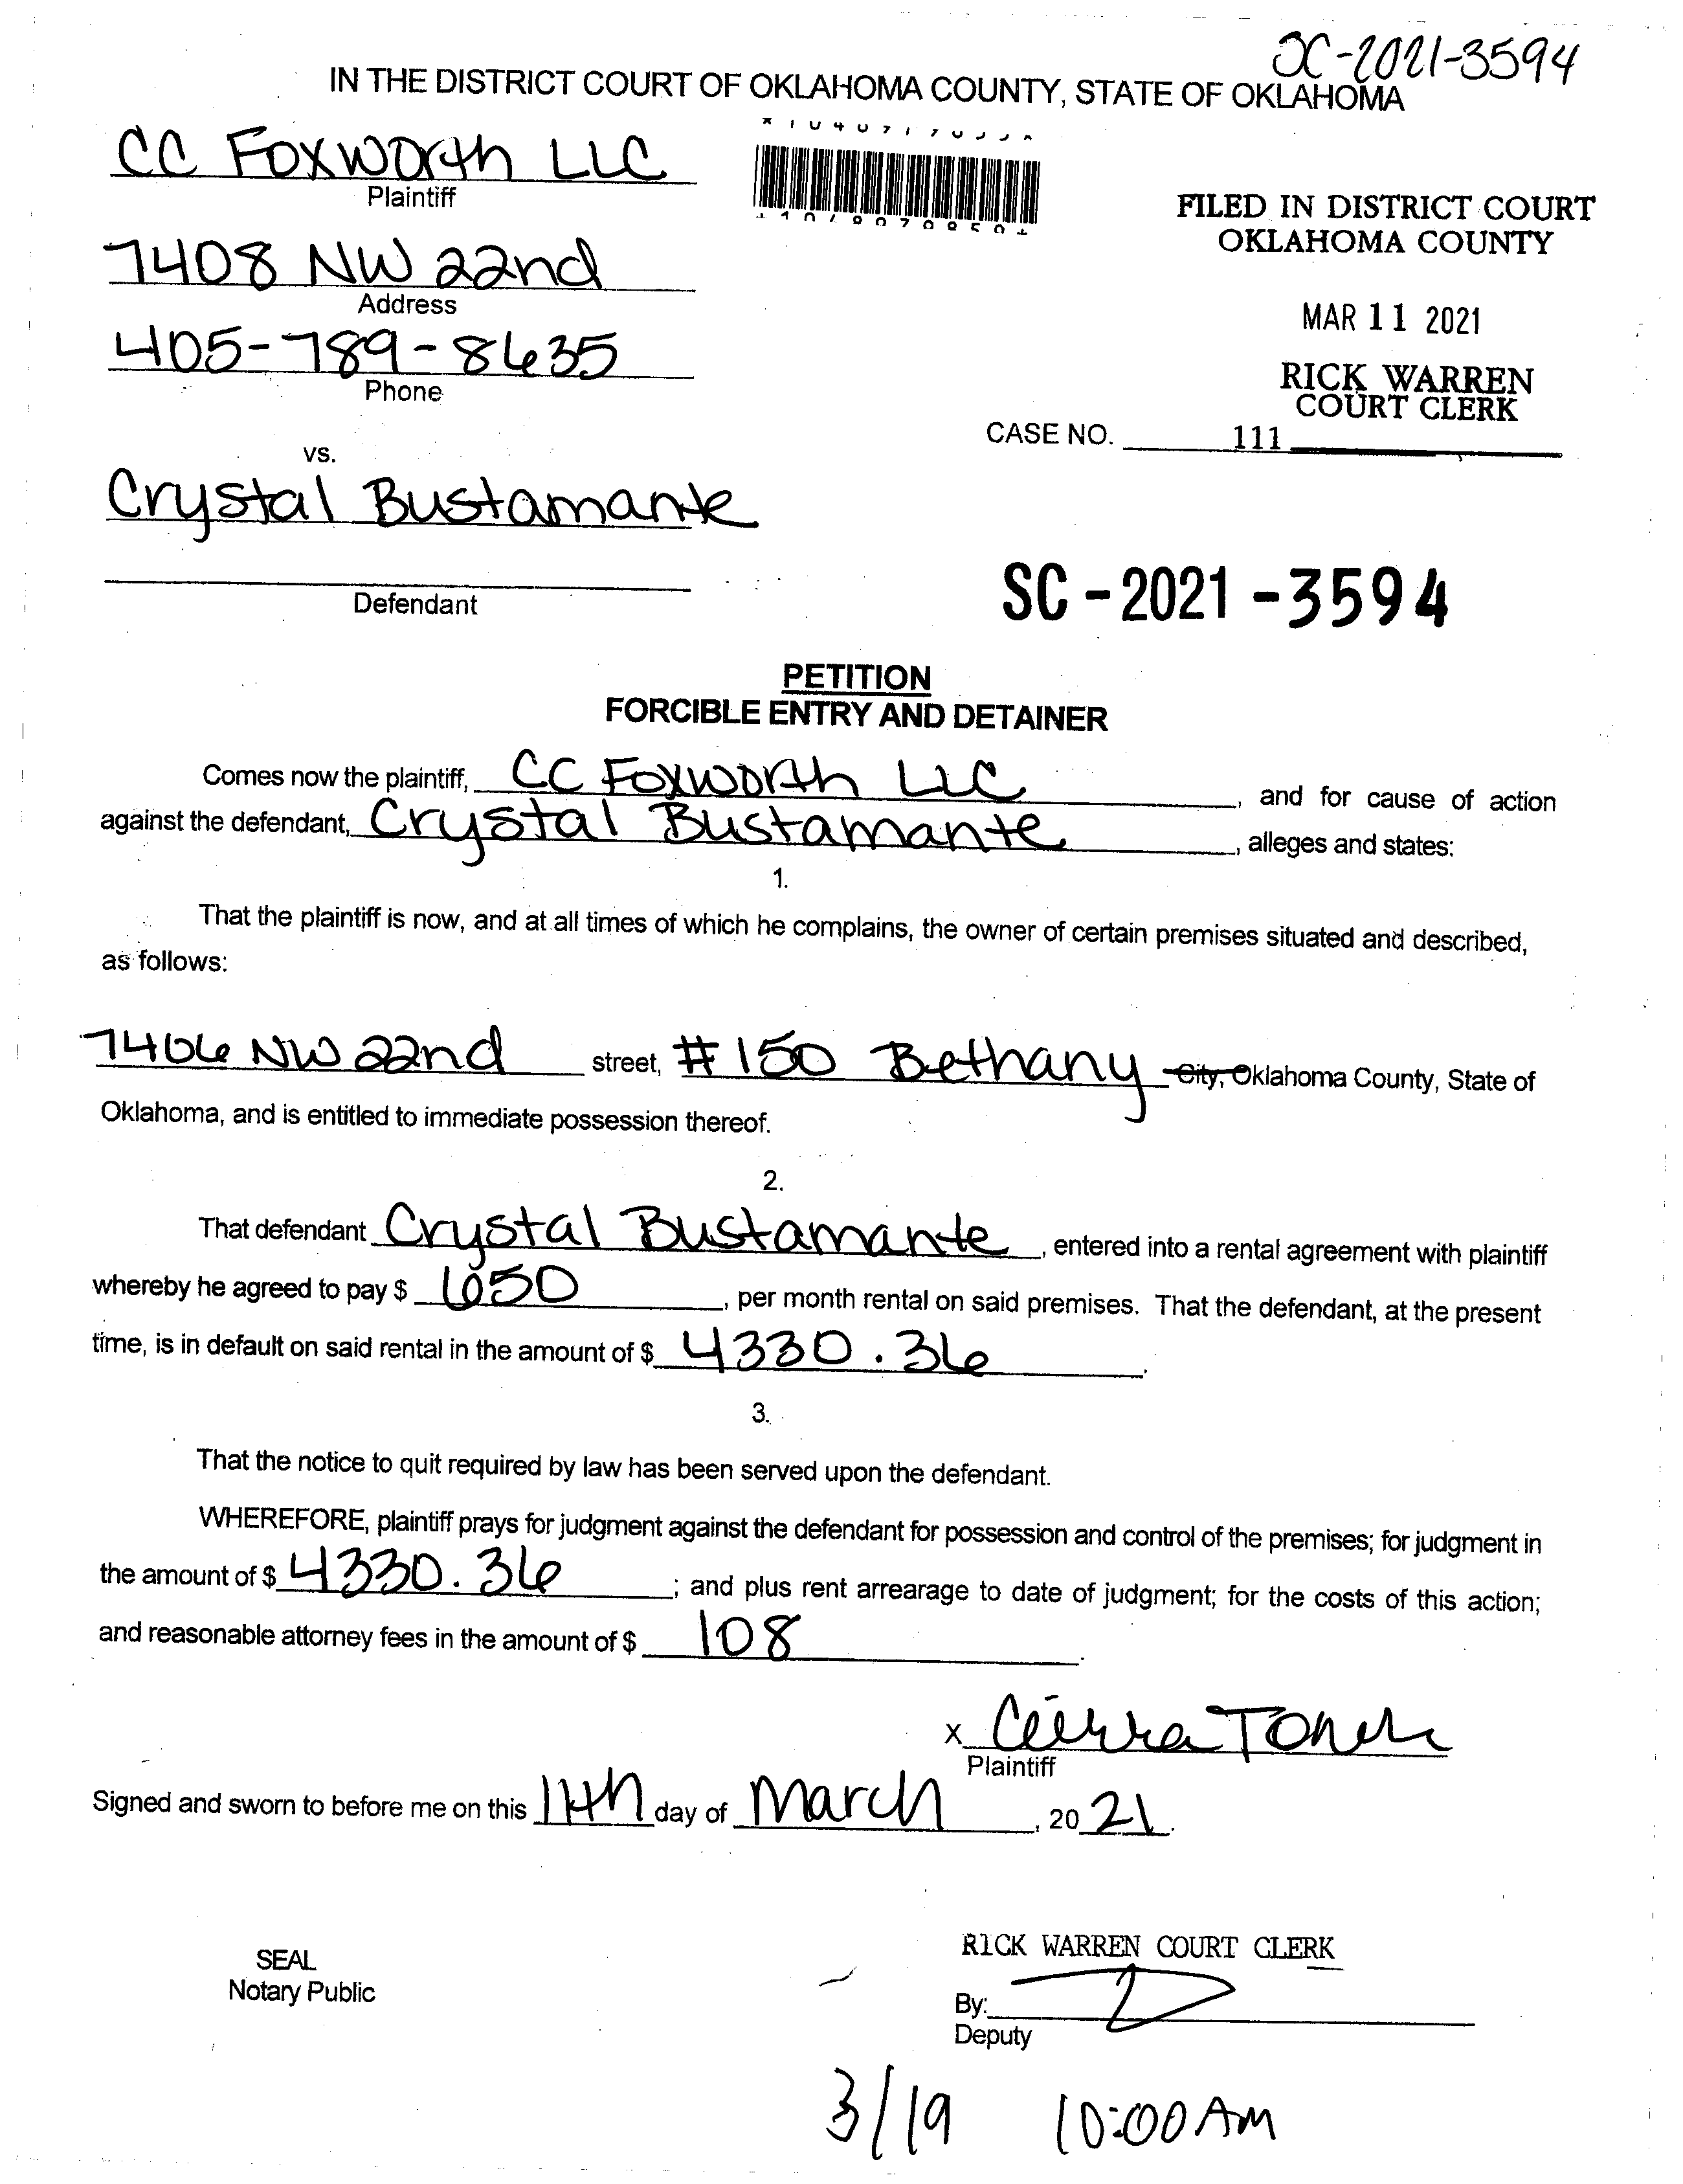 SC-2021-3594
IN THE DISTRICT COURT OF OKLAHOMA COUNTY, STATE OF OKLAHOMA
CC Foxworth LLC
Plaintiff
7408 NW 22nd
Address
405-789-8635
Phone
FILED IN DISTRICT COURT
OKLAHOMA COUNTY
MAR 11 2021
RICK WARREN
COURT CLERK
CASE NO. 111
vs.
Crystal Bustamante
Defendant
SC-2021-3594
PETITION
FORCIBLE ENTRY AND DETAINER
Comes now the plaintiff, CC Foxworth LLC, and for cause of action
against the defendant, Crystal Bustamante, alleges and states:
1.
That the plaintiff is now, and at all times of which he complains, the owner of certain premises situated and described,
as follows:
7406 NW 22nd street, #150 Bethany City, Oklahoma County, State of
Oklahoma, and is entitled to immediate possession thereof.
2.
That defendant Crystal Bustamante, entered into a rental agreement with plaintiff
whereby he agreed to pay $ 650, per month rental on said premises. That the defendant, at the present
time, is in default on said rental in the amount of $ 4330.36.
3.
That the notice to quit required by law has been served upon the defendant.
WHEREFORE, plaintiff prays for judgment against the defendant for possession and control of the premises; for judgment in
the amount of $ 4330.36; and plus rent arrearage to date of judgment; for the costs of this action;
and reasonable attorney fees in the amount of $ 108.
X Cierra Toner
Plaintiff
Signed and sworn to before me on this 11th day of March, 2021.
SEAL
Notary Public
RICK WARREN COURT CLERK
By:
Deputy
3/19 10:00 AM